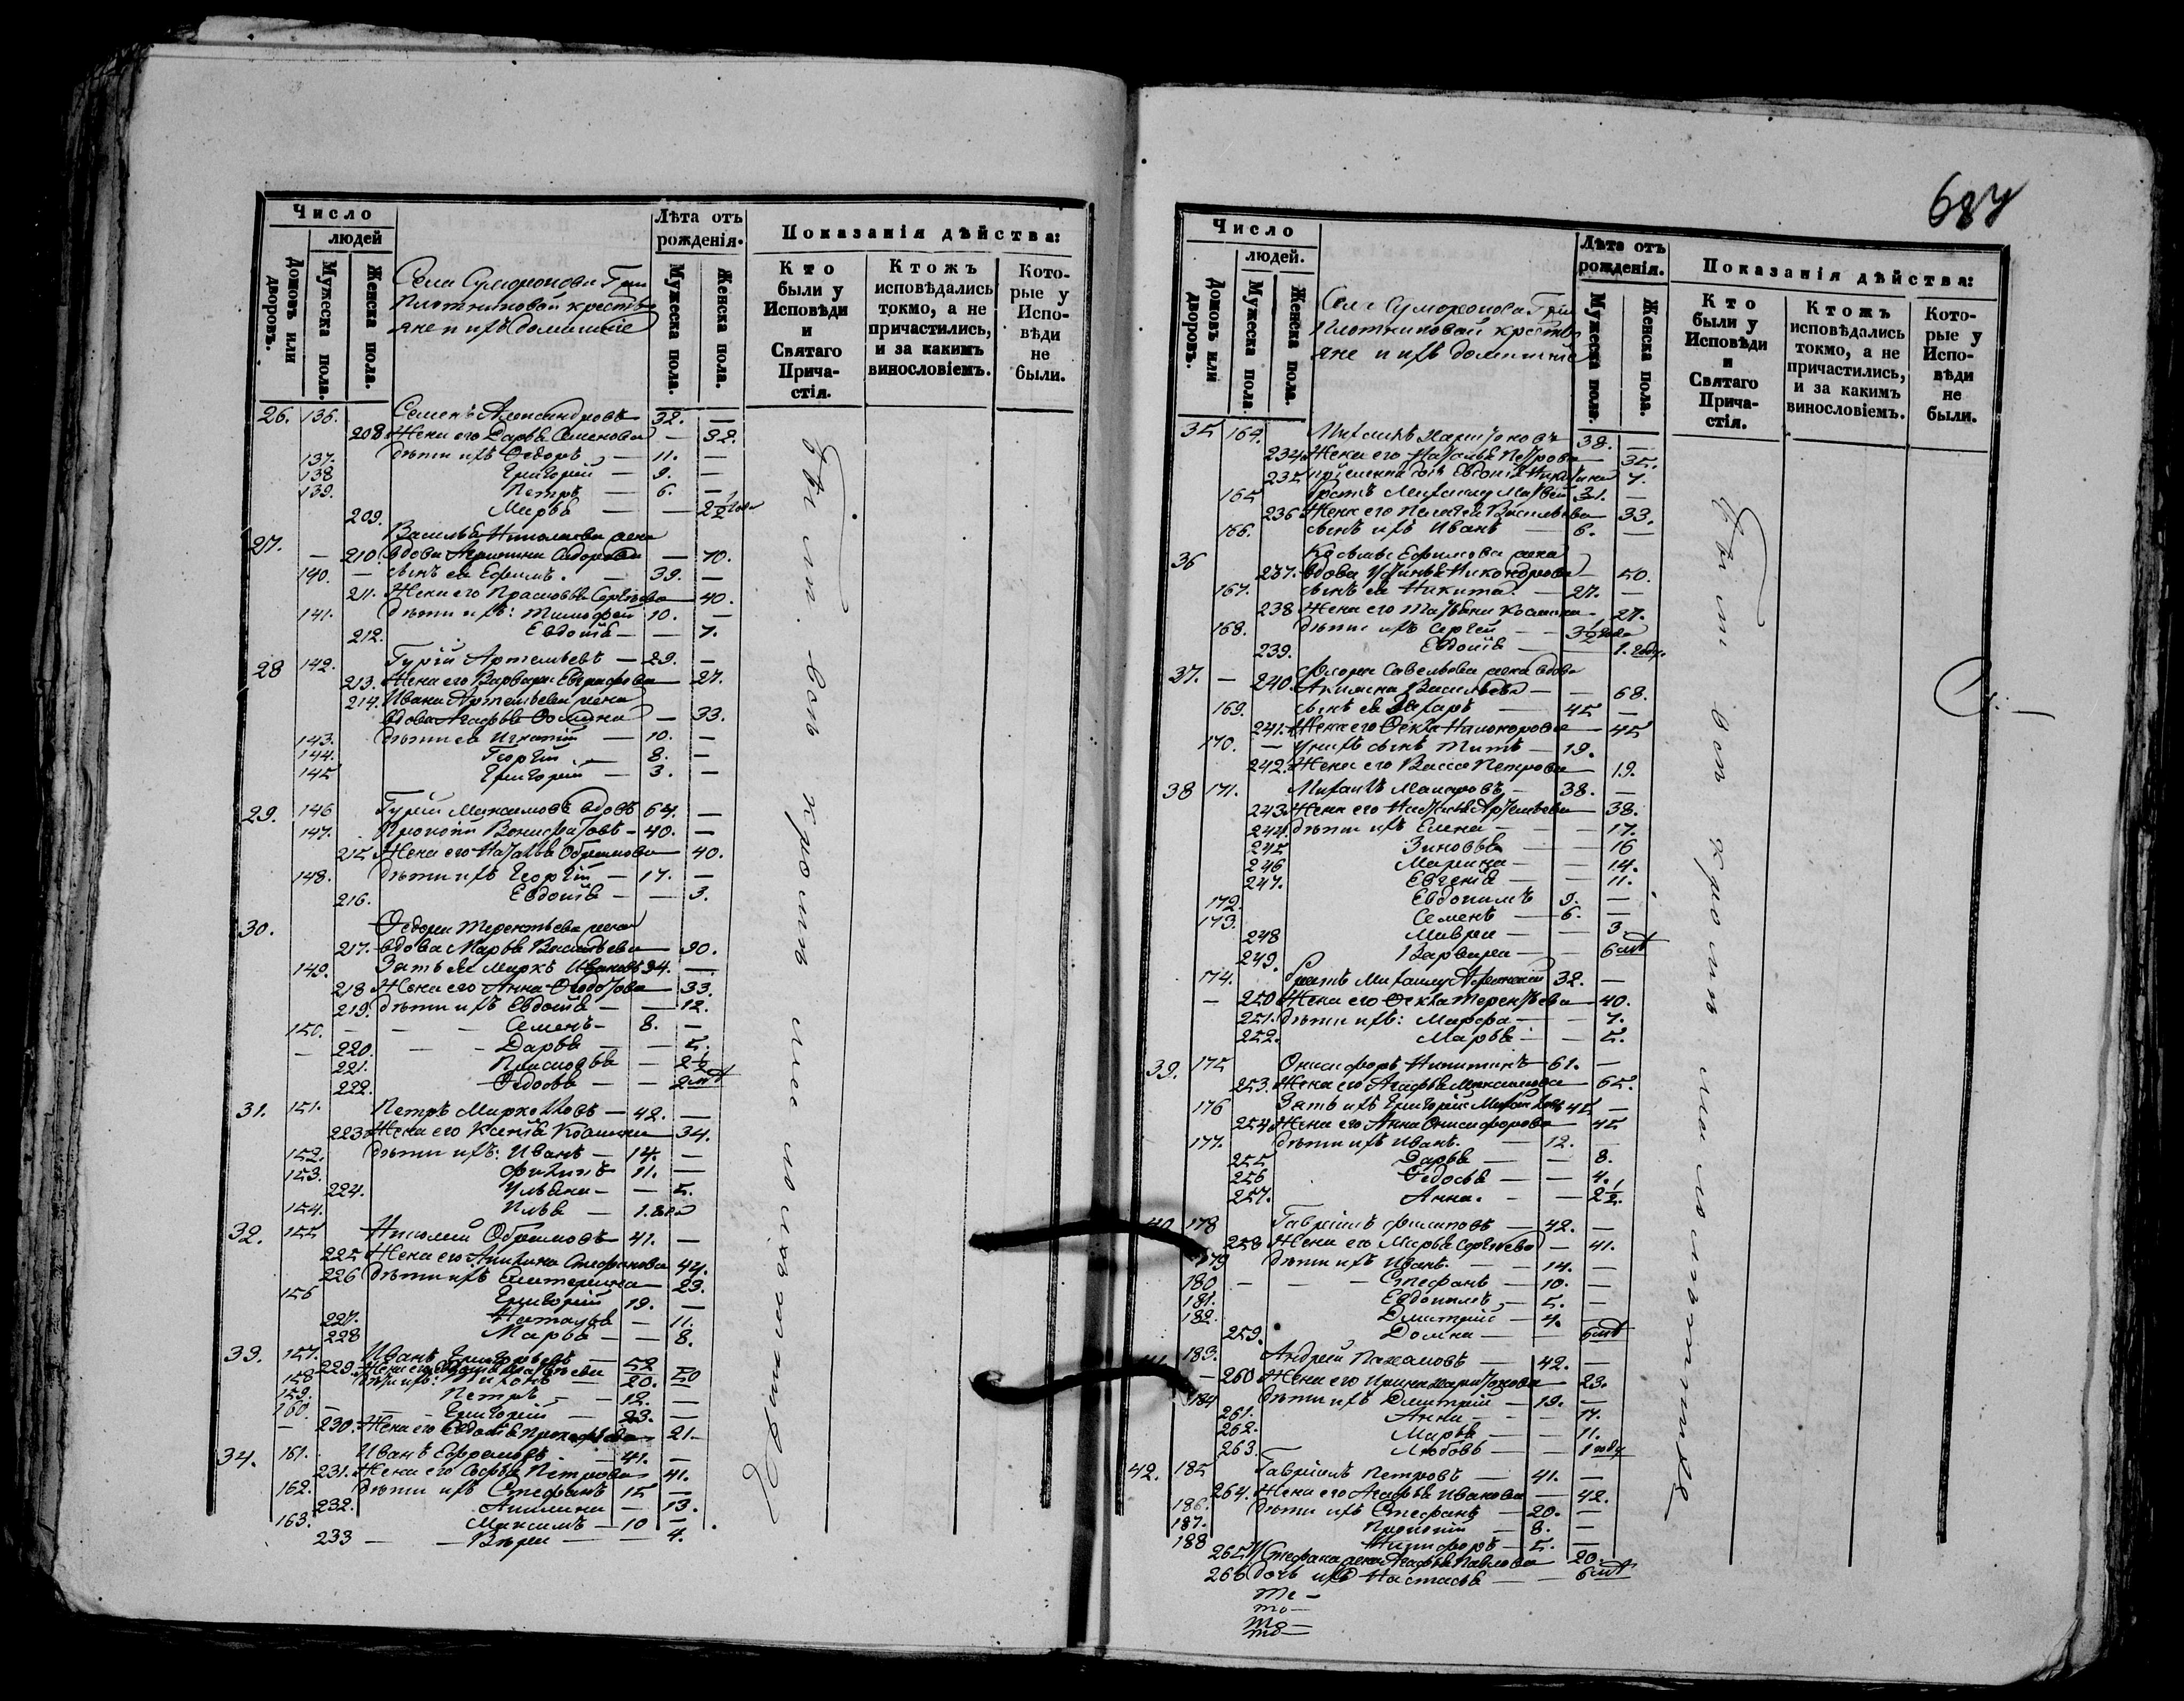 Число
людей
Домовъ или дворовъ.
Мужеска пола.
Женска пола.
Села
крестья
яне и ихъ домашніе
Лѣта отъ рожденія.
Мужеска пола.
Женска пола.
Показанія дѣйства:
Кто были у Исповѣди и Святаго Прича-стія.
Ктожъ исповѣдались токмо, а не причастились, и за какимъ винословіемъ.
Кото-рые у Испо-вѣди не были.
26. 136. Семенъ Александровъ 32. —
208 Жена его Дарья Семенова — 32.
137. дѣти ихъ Ѳедоръ — 11. —
138 Григорій — 9. —
139. Петръ — 6. —
209. Марья — — 2½ года
27. Василья Николаева жена
— 210. вдова Сидорова — 70.
140. — сынъ ея Ефимъ. — 39. —
211. Жена его Прасковья Сергѣева — 40.
141. дѣти ихъ: Тимофей 10. —
212. Евдокія — — 7.
28 142. Гурій Артемьевъ — 29. —
213. Жена его Варвара Евграфова — 27.
214. Ивана Артемьева жена
вдова Агафья Ѳомина — 33.
143. дѣти ея Игнатій — 10. —
144. Георгій — 8. —
145 Григорій — 3. —
29. 146 Гурій Максимовъ вдовъ 64. —
147. Прокопій Вонифатовъ — 40. —
215 Жена его Наталья — 40.
148. дѣти ихъ Георгій — 17. —
216. Евдокія — — 3.
30. Ѳедора Терентьева жена
217. вдова Марья Васильева — 90.
149. Зять ея Марко Ивановъ 34. —
218 Жена его Анна Ѳедотова — 33.
219. дѣти ихъ Евдокія — — 12.
150. — — — Семенъ — 8. —
— 220. — — Дарья — — 5.
221. Прасковья — 2½
222. Ѳедосья — —
31. 151. Петръ Марковъ — 42. —
223 Жена его Ксенія Козмина — 34.
152. дѣти ихъ: Иванъ — 14. —
153. Филипъ — 11. —
224. Ульяна — — 5.
154. Илья — 1. года
32. 155 Николай — 41. —
225 Жена его Акилина Стефанова 44.
226 дѣти ихъ Екатерина — 23.
156 Григорій 19. —
227. Наталья — 11.
228 Марья — — 8.
33. 157. Иванъ Григорьевъ — 52 —
229. Жена его 50
158 дѣти ихъ: — 20. —
159. Петръ — 12. —
160. — — — Григорій — 23. —
— 230. Жена его Евдокія Прокофьева 21.
34. 161. Иванъ Ефремовъ — 41. —
231. Жена его Софья Петрова 41.
162. дѣти ихъ Стефанъ 15 —
232. Акилина — 13.
163. Максимъ — 10 —
233 — — Вѣра — — 4.
684
Число
людей.
Домовъ или дворовъ.
Мужеска пола.
Женска пола.
яне и ихъ домашніе
Лѣта отъ рожденія.
Мужеска пола.
Женска пола.
Показанія дѣйства:
Кто были у Исповѣди и Святаго Прича-стія.
Ктожъ исповѣдались токмо, а не причастились, и за какимъ винословіемъ.
Кото-рые у Испо-вѣди не были.
35 164. Михаилъ Харитоновъ 38. —
234. Жена его Наталья Петрова — 35.
235 Евдокія 7.
165 братъ Михаилу Матвей 31. —
236 Жена его Пелагея Васильева — 33.
166. сынъ ихъ Иванъ — 6. —
36 Косьмы Ефимова жена
237. вдова Устинья Никандрова — 50.
167. сынъ ея Никита — 27. —
238 Жена его Татьяна Козмина — 27.
168. дѣти ихъ Сергей — — 3½ года
239. Евдокія — — 1. году.
37. — Флора Савельева жена вдова
240. Акилина Васильева — — 68.
169. сынъ ея Захаръ — 45 —
241. Жена его Ѳекла — 45
170. — у нихъ сынъ Титъ — 19.
242. Жена его Васса Петрова — 19.
38 171. Михаилъ Макаровъ — 38. —
243 Жена его Наталья Артемьева — 38.
244. дѣти ихъ Елена — — 17.
245 Зиновья — 16
246 Марина — — 14.
247. Евгенія — — 11.
172. Евдокимъ 9. —
173. Семенъ — 6. —
248 Мавра — — 3
249. Варвара — — 6 мѣс
174. братъ Михаилу 32. —
— 250 Жена его Ѳекла Терентьева — 40.
251. дѣти ихъ: Марфа — — 7.
252. Марья — — 5.
39. 175 Онисифоръ Никитинъ — 61. —
253. Жена его Агафья Максимова — 65.
176 Зять ихъ Григорій Михайловъ 45. —
254. Жена его Анна Онисифорова — 45
177. дѣти ихъ Иванъ. — 12. —
255 Дарья — — 8.
256 Ѳедосья — — 4.
257. Анна. — — 2½
40. 178 Гавріилъ Филиповъ — 42. —
258 Жена его Марья Сергеева — 41.
179 дѣти ихъ Иванъ — — 14. —
180 — — — Стефанъ — 10. —
181. Евдокимъ — 5. —
182. Дмитрій — 4. —
259. Домна — — 6 мѣс
41. 183. Андрей Пахомовъ — 42. —
— 260 Жена его Ирина Харитонова — 23.
184 дѣти ихъ Дмитрій — 19. —
261. Анна — — 17.
262. Марья — — 11.
263. Любовь — — 1 году
42. 185 Гавріилъ Петровъ — 41. —
264. Жена его Агафья Иванова — 42.
186. дѣти ихъ Стефанъ — 20. —
187. Прокопій — 8. —
188 Никифоръ — 5. —
265 Стефана жена Агафья Павлова 20.
266 дочь ихъ Настасья — — 6 мѣс